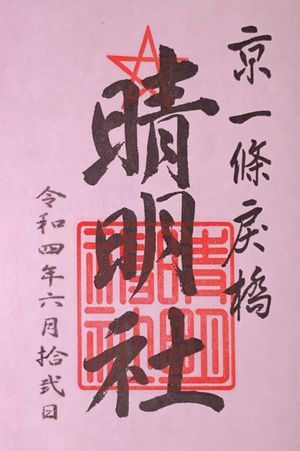 京一條戻橋
晴明社
晴明神社
令和四年六月拾弐日